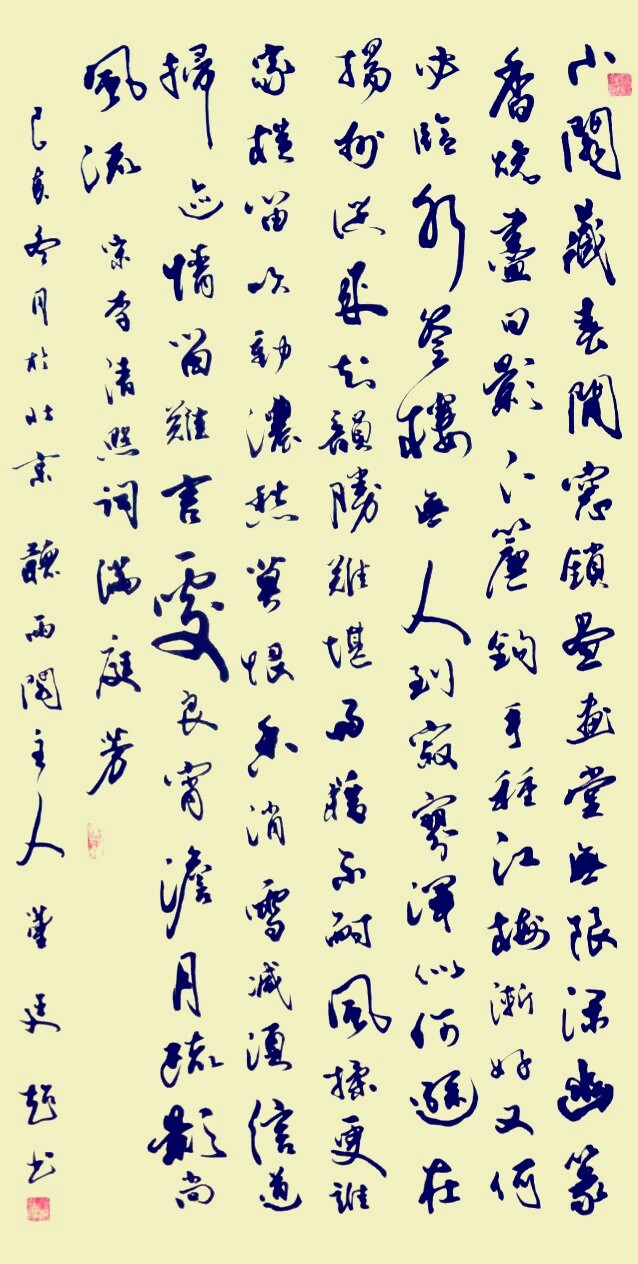 小閣藏春閒窗鎖晝畫堂無限深幽篆
香燒盡日影下簾鉤手種江梅漸好又何
必臨水登樓無人到寂寥渾似何遜在
揚州從來知韻勝難堪雨藉不耐風揉更誰
家橫笛吹動濃愁莫恨香消雪減須信道
掃迹情留難言處良宵淡月疏影尚
風流 宋李清照詞滿庭芳
己亥冬月於北京 聽雨閣主人 董 廷 超 書